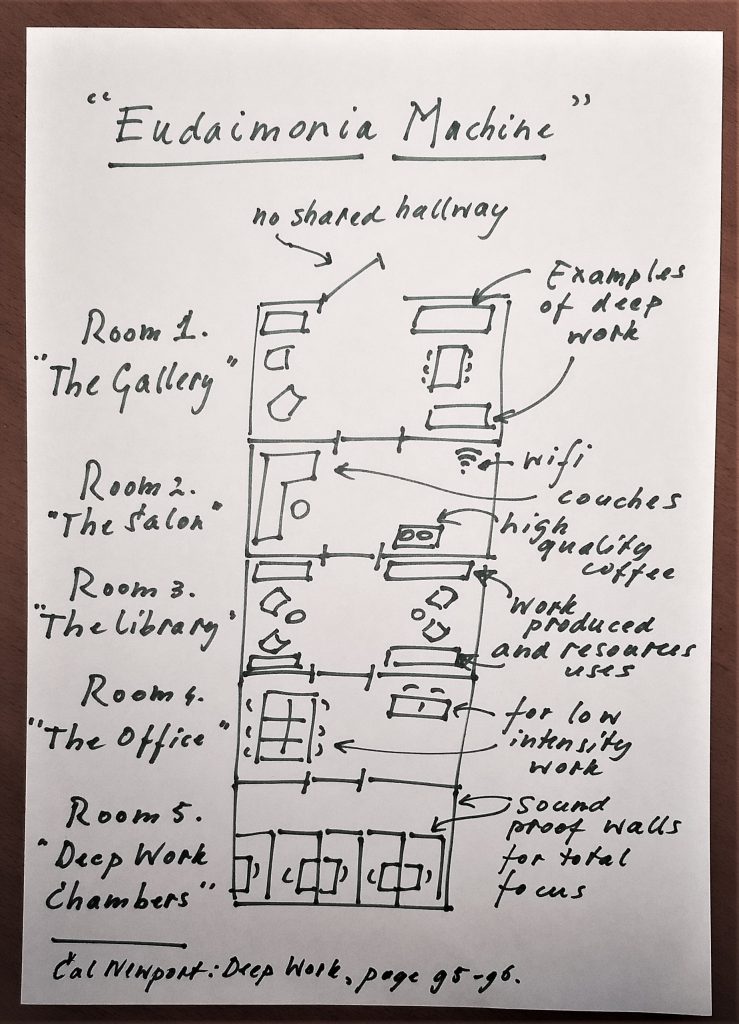 "Eudaimonia Machine"
no shared hallway
Examples
of deep
work
Room 1.
"The Gallery"
wifi
Room 2.
"The Salon"
couches
high
quality
coffee
Room 3.
"The Library"
work
produced
and resources
uses
Room 4.
"The Office"
for low
intensity
work
Room 5.
"Deep Work
Chambers"
Sound
proof walls
for total
focus
Cal Newport: Deep Work, page 95-96.